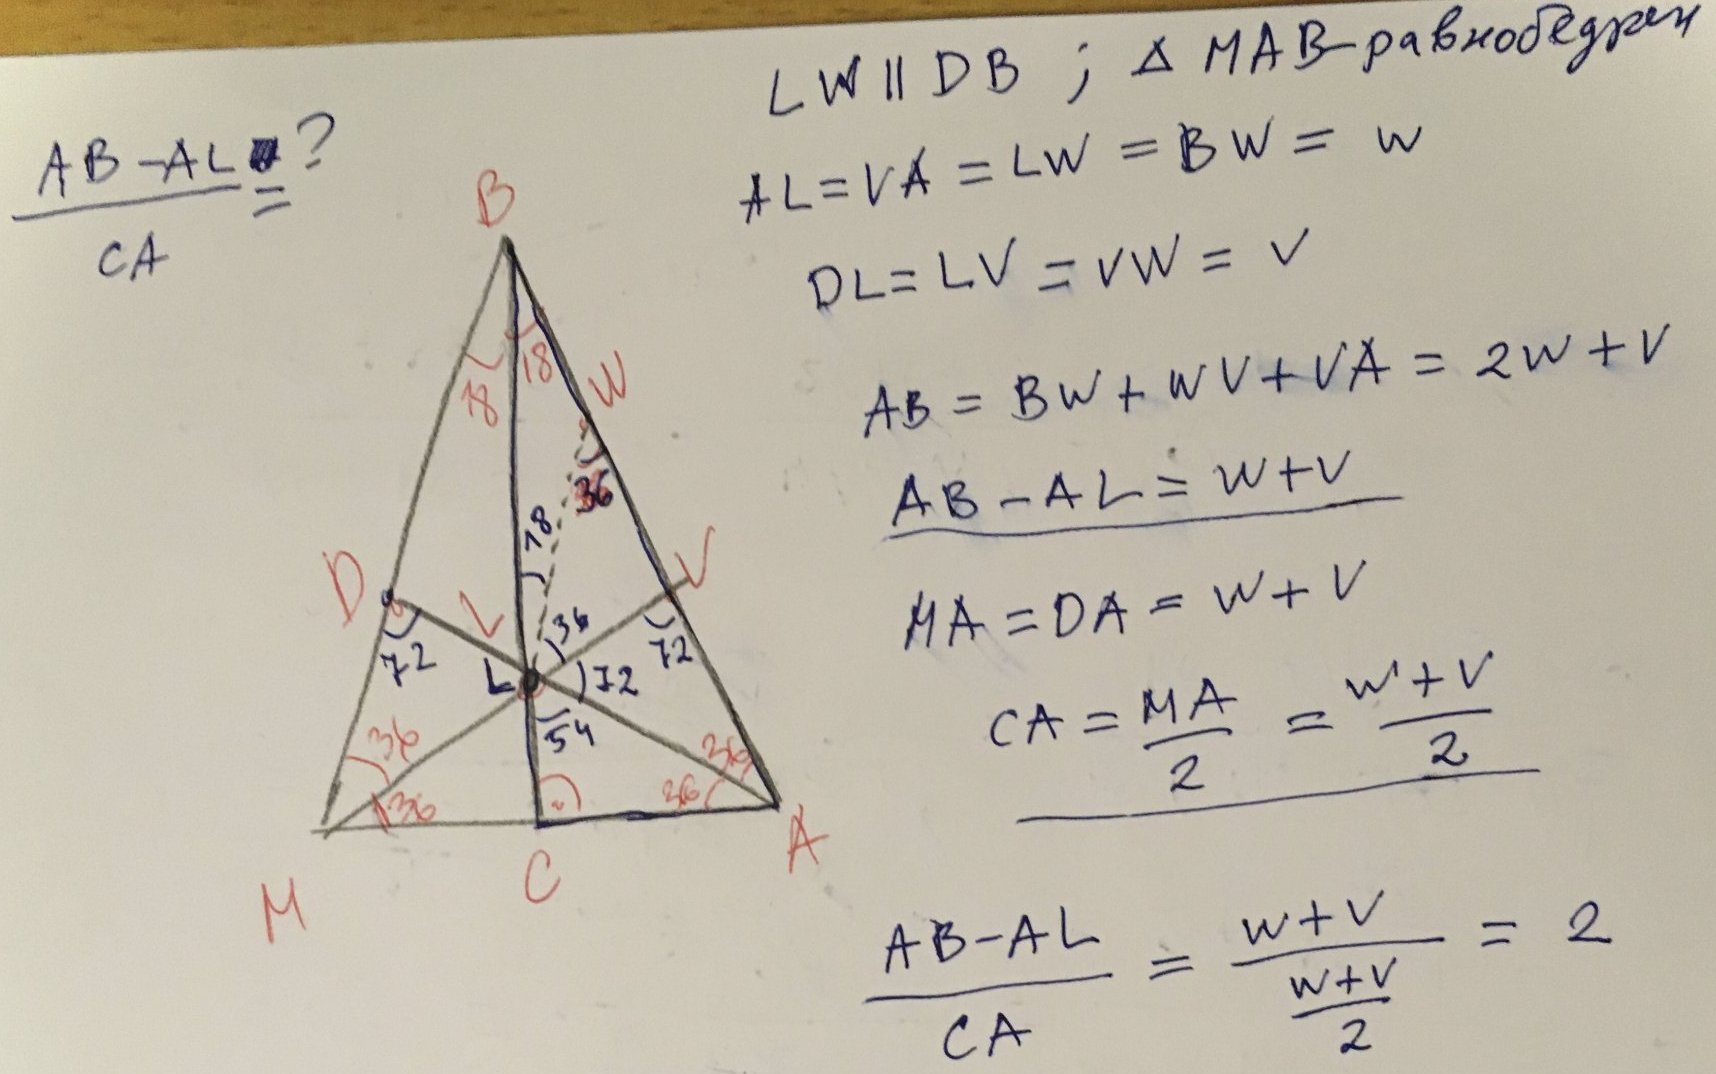 LW || DB ; Δ MAB-равнобедрен
AB - AL = ?
CA
AL = VA = LW = BW = w
DL = LV = VW = v
AB = BW + WV + VA = 2w + v
AB - AL = w + v
MA = DA = w + v
CA = MA/2 = w + v/2
AB - AL/CA = w + v/(w + v/2) = 2
B
18
18
W
36
18
D
V
V
72
36
72
L
72
54
36
36
36
36
M
C
A